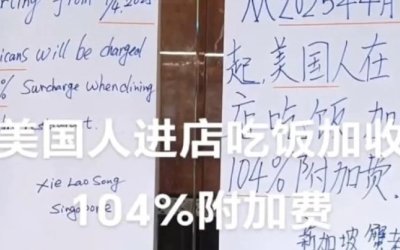 rting from
icans will be charged
% Surcharge when dining
Xie Lao Song
Singapore
从2025年4月
起,美国人在
店吃饭加
104%附加费.
新加坡 蟹老
美国人进店吃饭加收
104%附加费